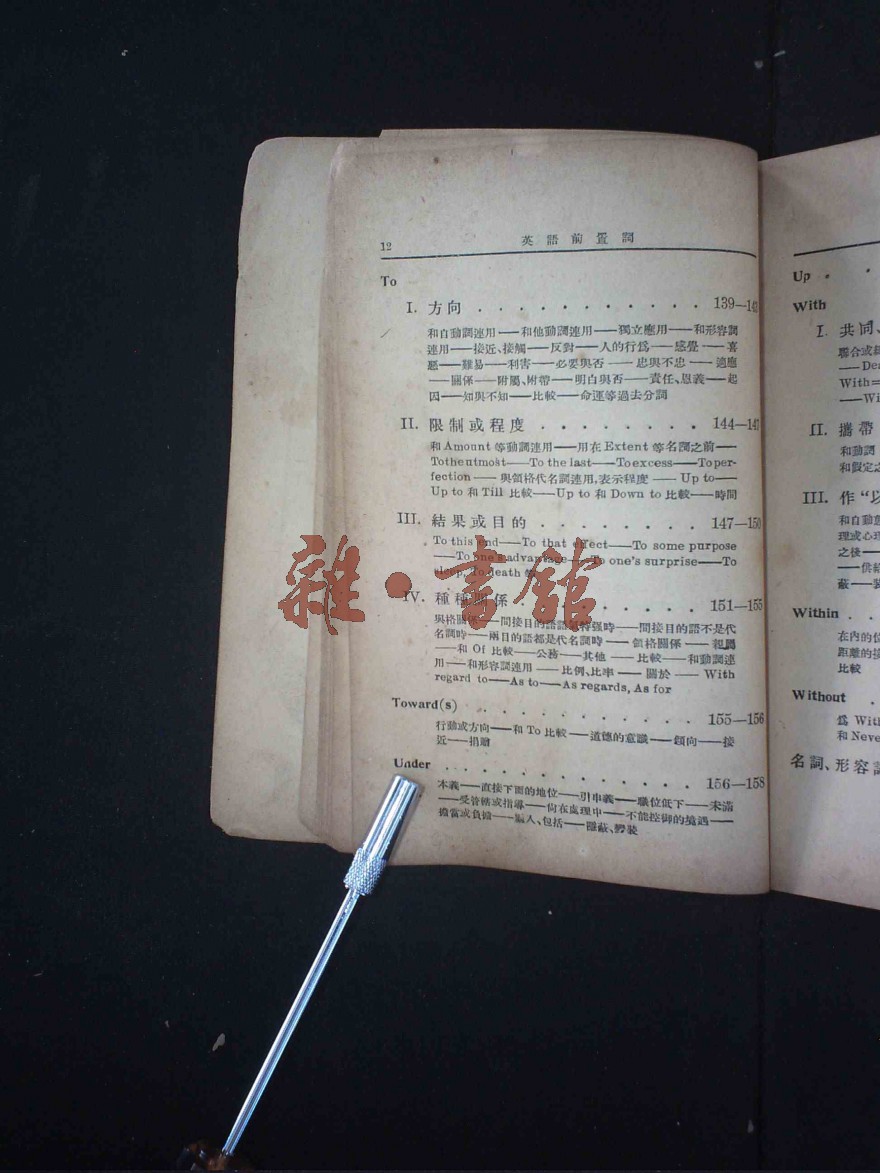 12
英語前置詞
To
I. 方向 . . . . . . . . . . . 139—143
和自動詞連用——和他動詞連用——獨立應用——和形容詞
連用——接近、接觸——反對——人的行爲——感覺——喜
惡——難易——利害——必要與否——忠與不忠——適應
——關係——附屬、附帶——明白與否——責任、恩義——起
因——知與不知——比較——命運等過去分詞
II. 限制或程度 . . . . . . . . 144—147
和 Amount 等動詞連用——用在 Extent 等名詞之前——
To the utmost——To the last——To excess——To per-
fection——與領格代名詞連用,表示程度——Up to——
Up to 和 Till 比較——Up to 和 Down to 比較——時間
III. 結果或目的 . . . . . . . . 147—150
To this end——To that effect——To some purpose
——To one's advantage——To one's surprise——To
sleep, To death
IV. 種種關係 . . . . . . . . . 151—155
與格關係——間接目的語語氣特强時——間接目的語不是代
名詞時——兩目的語都是代名詞時——領格關係——親屬
——和 Of 比較——公務——其他——比較——和動詞連
用——和形容詞連用——比例、比率——關於——With
regard to——As to——As regards, As for
Toward(s) . . . . . . . . . . 155—156
行動或方向——和 To 比較——道德的意識——傾向——接
近——捐贈
Under . . . . . . . . . . . 156—158
本義——直接下面的地位——引申義——職位低下——未滿
——受管轄或指導——尙在處理中——不能控御的境遇——
擔當或負擔——屬人、包括——隱蔽、
雜·書館
Up .
With
I. 共同、
聯合或
——Dea
With=
——Wi
II. 攜帶
和動詞
和假定之
III. 作“以
和自動
理或心理
之後——
——供給
蔽——
Within .
在內的位
距離的接
比較
Without .
爲 With
和 Neve
名詞、形容詞